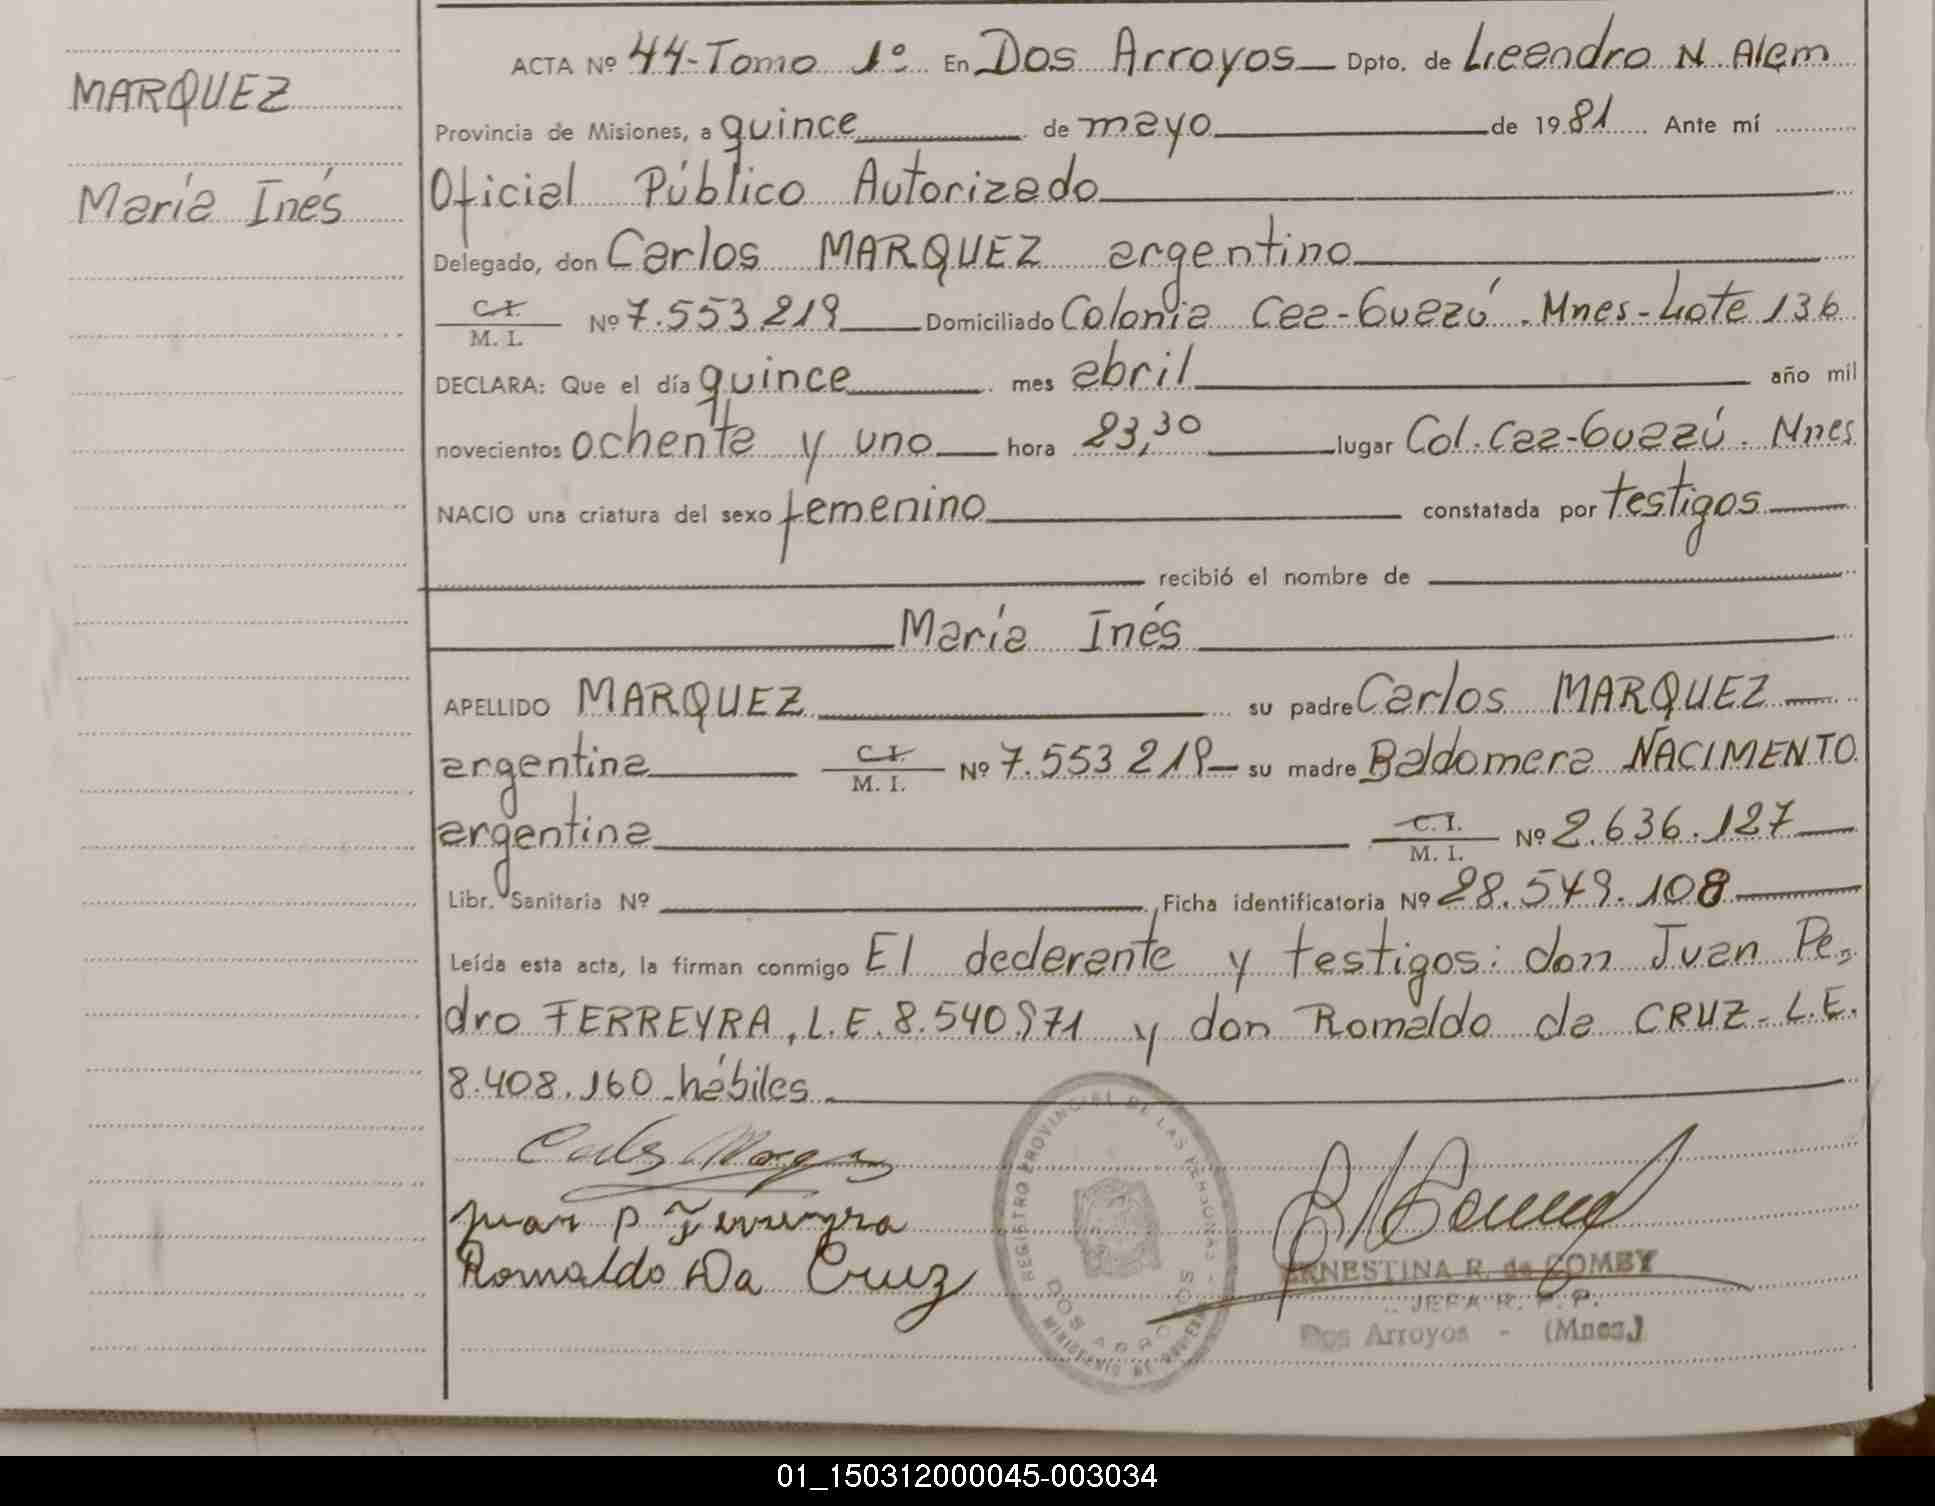 MARQUEZ
María Inés
ACTA Nº 44-Tomo 1º En Dos Arroyos Dpto. de Leandro N. Alem
Provincia de Misiones, a quince de mayo de 1981 Ante mí
Oficial Público Autorizado
Delegado, don Carlos MARQUEZ argentino
C.I.
M. I. Nº 7.553.219 Domiciliado Colonia Caa-Guazú. Mnes-Lote 136
DECLARA: Que el día quince mes abril año mil
novecientos ochenta y uno hora 23,30 lugar Col. Caa-Guazú. Mnes
NACIO una criatura del sexo femenino constatada por testigos
recibió el nombre de
María Inés
APELLIDO MARQUEZ su padre Carlos MARQUEZ
argentina C.I. M. I. Nº 7.553 219 su madre Baldomera NACIMENTO
argentina C.I. M. I. Nº 2.636.127
Libr. Sanitaria Nº Ficha identificatoria Nº 28.549.108
Leída esta acta, la firman conmigo El declarante y testigos: don Juan Pe-
dro FERREYRA, L.E. 8.540.971 y don Romaldo da CRUZ-L.E.
8.408.160-hábiles
Juan P Ferreyra
Romaldo Da Cruz
REGISTRO PROVINCIAL DE LAS PERSONAS
DOS ARROYOS
MINISTERIO DE GOBIERNO
ERNESTINA R. de COMBY
JEFA R. P. P.
Dos Arroyos - (Mnes.)
01_150312000045-003034